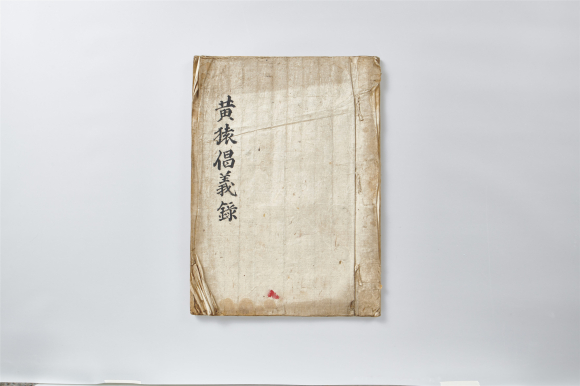 黄猿倡義錄